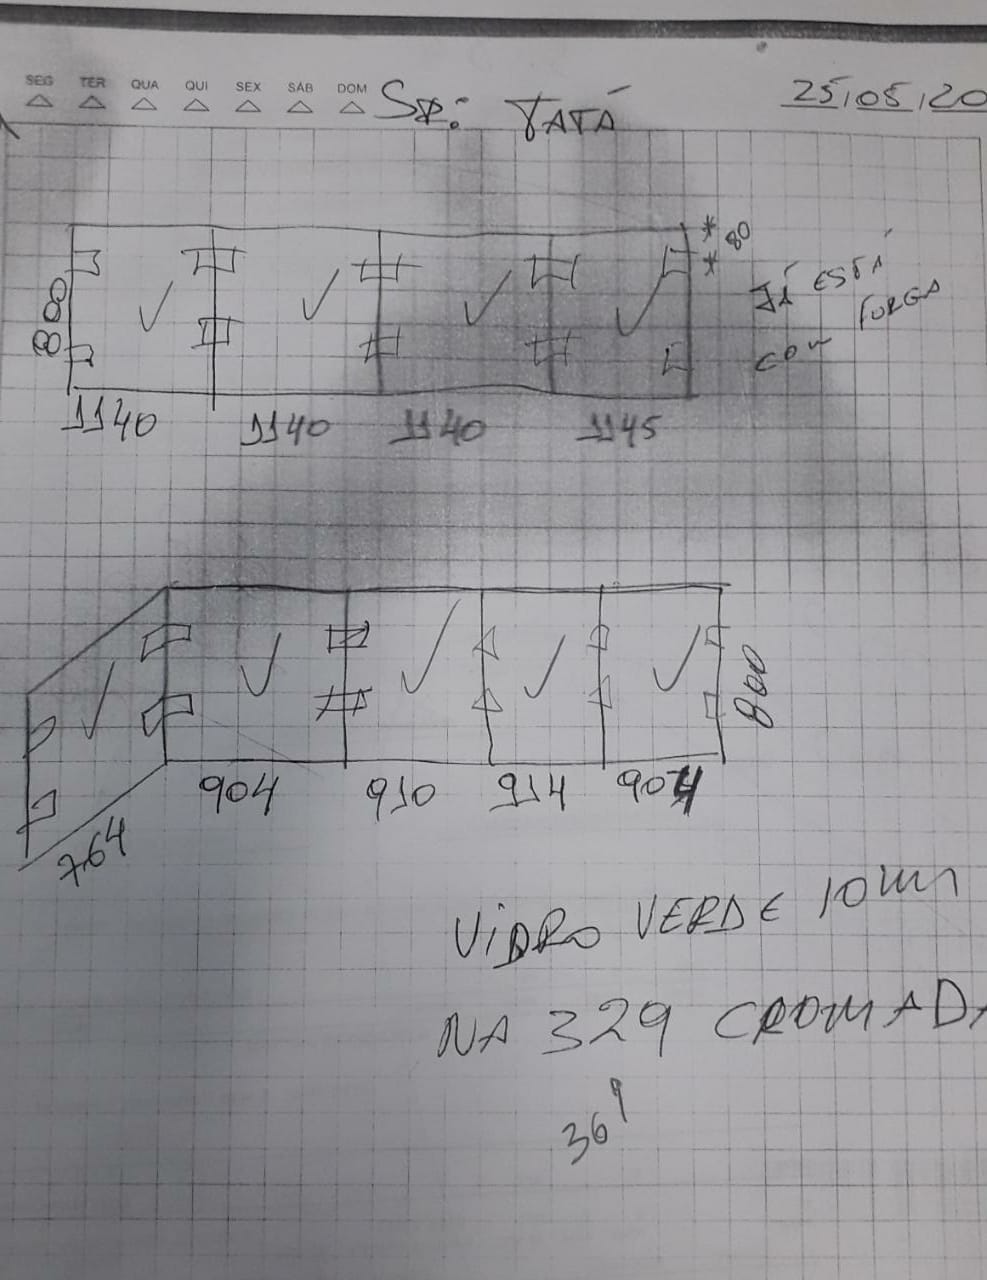 SEG TER QUA QUI SEX SÁB DOM
SR: TATÁ
25/05/20
80
JÁ ESTÁ
COM FORGA
800
1140 1140 1140 1145
800
764
904 910 914 904
VIDRO VERDE 10mm
NA 329 CROMADA
36